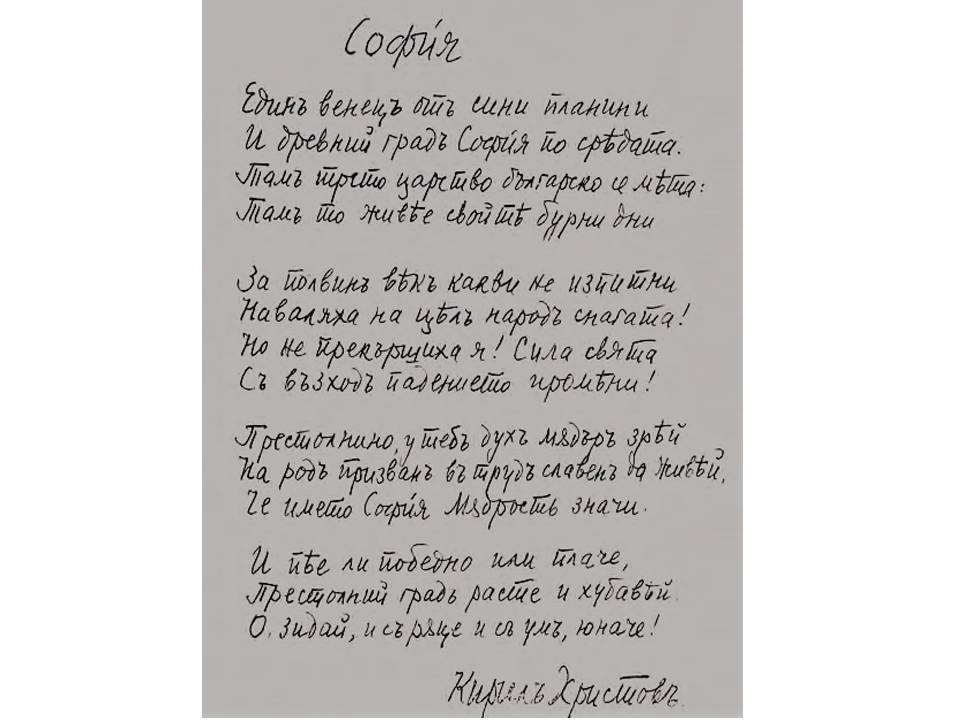 Софи́я
Единъ венецъ отъ сини планини
И древний градъ Софи́я по срѣдата.
Тамъ трето царство българско се мѣта:
Тамъ то живѣе свойтѣ бурни дни
За половинъ вѣкъ какви не изпитни
Наваляха на цѣлъ народъ снагата!
Но не прекършиха я! Сила свята
Съ възходъ падението промѣни!
Престолнино, у тебъ духъ мѫдъръ зрѣй
На родъ призванъ въ трудъ славенъ да живѣй,
Че името Софи́я Мѫдрость значи.
И пѣе ли победно или плаче,
Престолний градъ расте и хубавѣй.
О, зидай, и съ рѫце и съ умъ, юначе!
Кирилъ Христовъ